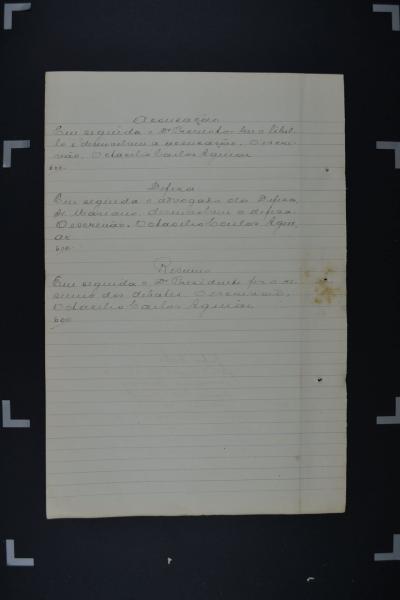 Accusação
Em seguida o Dr Promotor leu o libel-
lo e desenvolveu a accusação. O escri-
vão, Octacilio Carlos Aguiar
600
Defeza
Em seguida o advogado da Defeza,
Dr. Mariano, desenvolveu a defeza.
O escrivão, Octacilio Carlos Agui
ar.
600
Resumo
Em seguida o Dr Presidente fez o re-
sumo dos debates. O escrivão,
Octacilio Carlos Aguiar
600